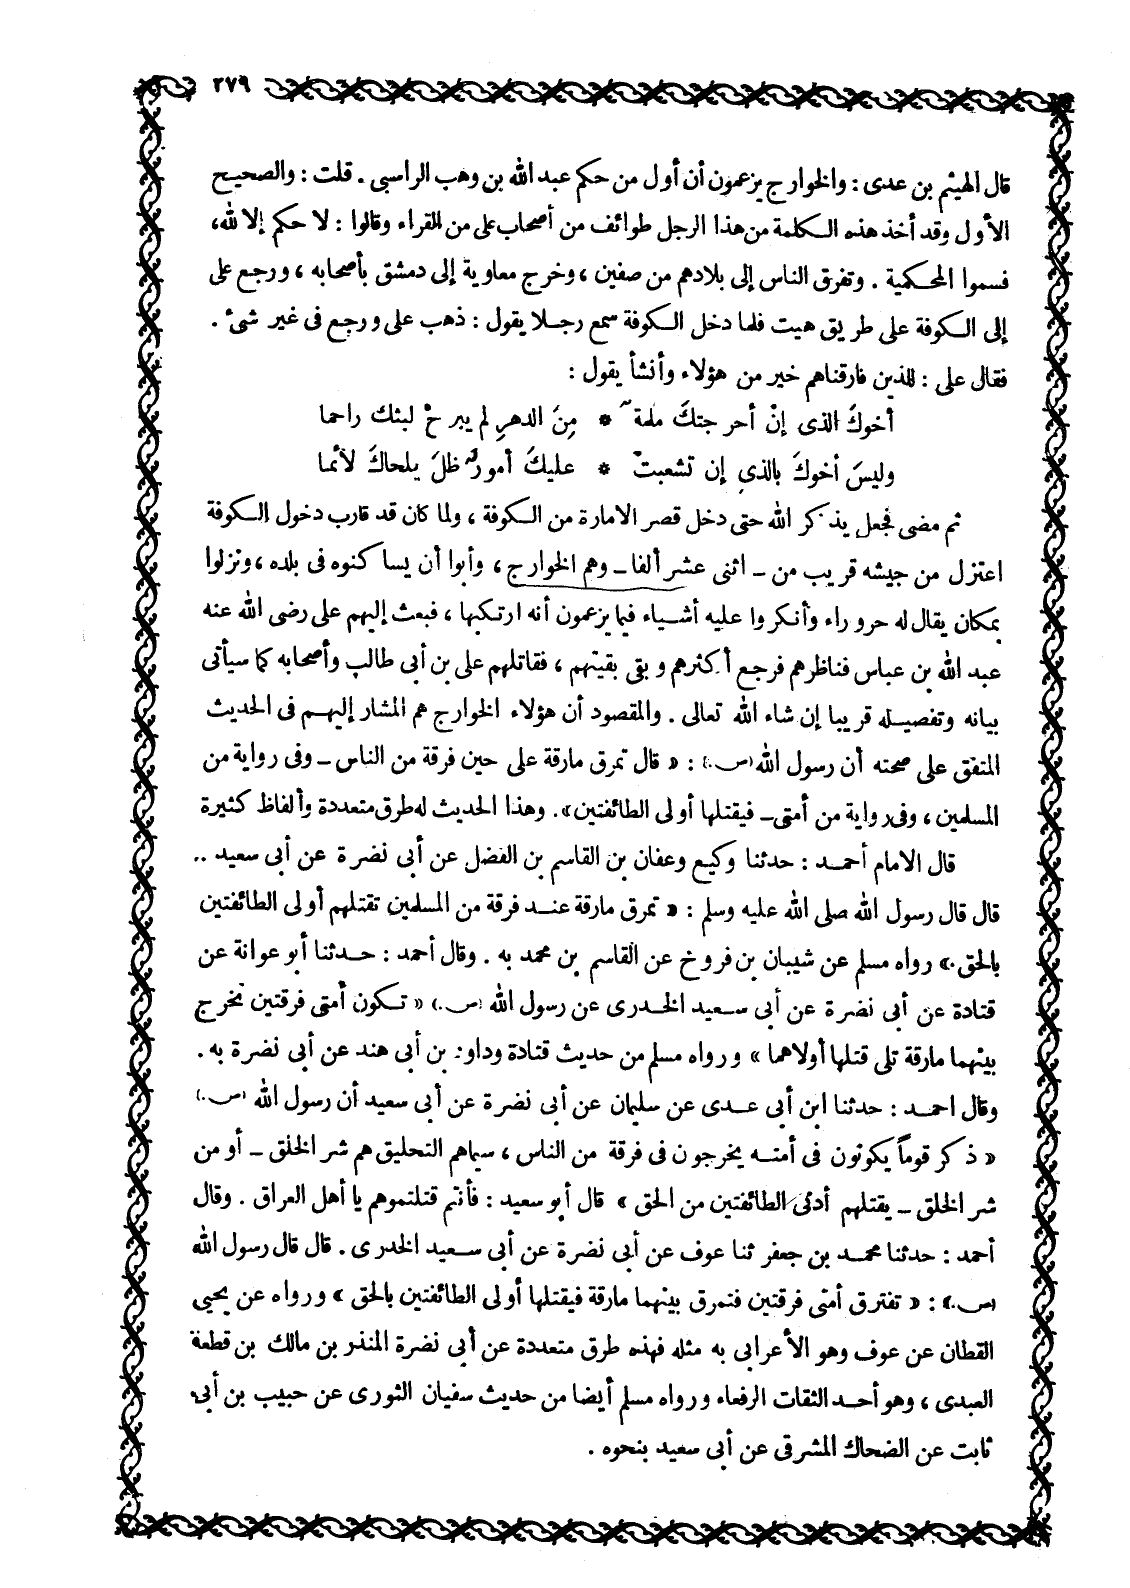 ٢٧٩
قال الهيثم بن عدى : والخوارج يزعمون أن أول من حكم عبد الله بن وهب الراسبى . قلت : والصحيح
الأول وقد أخذ هذه الكلمة من هذا الرجل طوائف من أصحاب على من القراء وقالوا : لا حكم إلا لله،
فسموا المحكمية . وتفرق الناس إلى بلادهم من صفين ، وخرج معاوية إلى دمشق بأصحابه ، ورجع على
إلى الكوفة على طريق هيت فلما دخل الكوفة سمع رجلا يقول : ذهب على ورجع فى غير شئ .
فقال على : للذين فارقناهم خير من هؤلاء وأنشأ يقول :
أخوكَ الذى إنْ أحرجتكَ ملمة * مِنَ الدهرِ لم يبرحْ لبثك راحما
وليسَ أخوكَ بالذي إن تشعبتْ * عليكَ أمورٌ ظلَ يلحاكَ لائما
ثم مضى فجعل يذكر الله حتى دخل قصر الامارة من الكوفة ، ولما كان قد قارب دخول الكوفة
اعتزل من جيشه قريب من ــ اثنى عشر ألفا ــ وهم الخوارج ، وأبوا أن يساكنوه فى بلده ، ونزلوا
بمكان يقال له حروراء وأنكروا عليه أشياء فيما يزعمون أنه ارتكبها ، فبعث إليهم على رضى الله عنه
عبد الله بن عباس فناظرهم فرجع أكثرهم وبقى بقيتهم ، فقاتلهم على بن أبى طالب وأصحابه كما سيأتى
بيانه وتفصيله قريبا إن شاء الله تعالى . والمقصود أن هؤلاء الخوارج هم المشار إليهم فى الحديث
المتفق على صحته أن رسول الله (ص.) : « قال تمرق مارقة على حين فرقة من الناس ــ وفى رواية من
المسلمين ، وفى رواية من أمتى ــ فيقتلها أولى الطائفتين » . وهذا الحديث له طرق متعددة وألفاظ كثيرة
قال الامام أحمد : حدثنا وكيع وعفان بن القاسم بن الفضل عن أبى نضرة عن أبى سعيد ..
قال قال رسول الله صلى الله عليه وسلم : « تمرق مارقة عند فرقة من المسلمين تقتلهم أولى الطائفتين
بالحق .» رواه مسلم عن شيبان بن فروخ عن القاسم بن محمد به . وقال أحمد : حدثنا أبو عوانة عن
قتادة عن أبى نضرة عن أبى سعيد الخدرى عن رسول الله (ص.) « تكون أمتى فرقتين تخرج
بينهما مارقة تلى قتلها أولاهما » ورواه مسلم من حديث قتادة وداود بن أبى هند عن أبى نضرة به .
وقال احمد : حدثنا ابن أبى عدى عن سليمان عن أبى نضرة عن أبى سعيد أن رسول الله (ص.)
« ذكر قوماً يكونون فى أمته يخرجون فى فرقة من الناس ، سيماهم التحليق هم شر الخلق ــ أو من
شر الخلق ــ يقتلهم أدنى الطائفتين من الحق » قال أبو سعيد : فأنتم قتلتموهم يا أهل العراق . وقال
أحمد : حدثنا محمد بن جعفر ثنا عوف عن أبى نضرة عن أبى سعيد الخدرى . قال قال رسول الله
(ص.) : « تفترق أمتى فرقتين فتمرق بينهما مارقة فيقتلها أولى الطائفتين بالحق » ورواه عن يحيى
القطان عن عوف وهو الأعرابى به مثله فهذه طرق متعددة عن أبى نضرة المنذر بن مالك بن قطعة
العبدى ، وهو أحد الثقات الرفعاء ورواه مسلم أيضا من حديث سفيان الثورى عن حبيب بن أبى
ثابت عن الضحاك المشرقى عن أبى سعيد بنحوه .